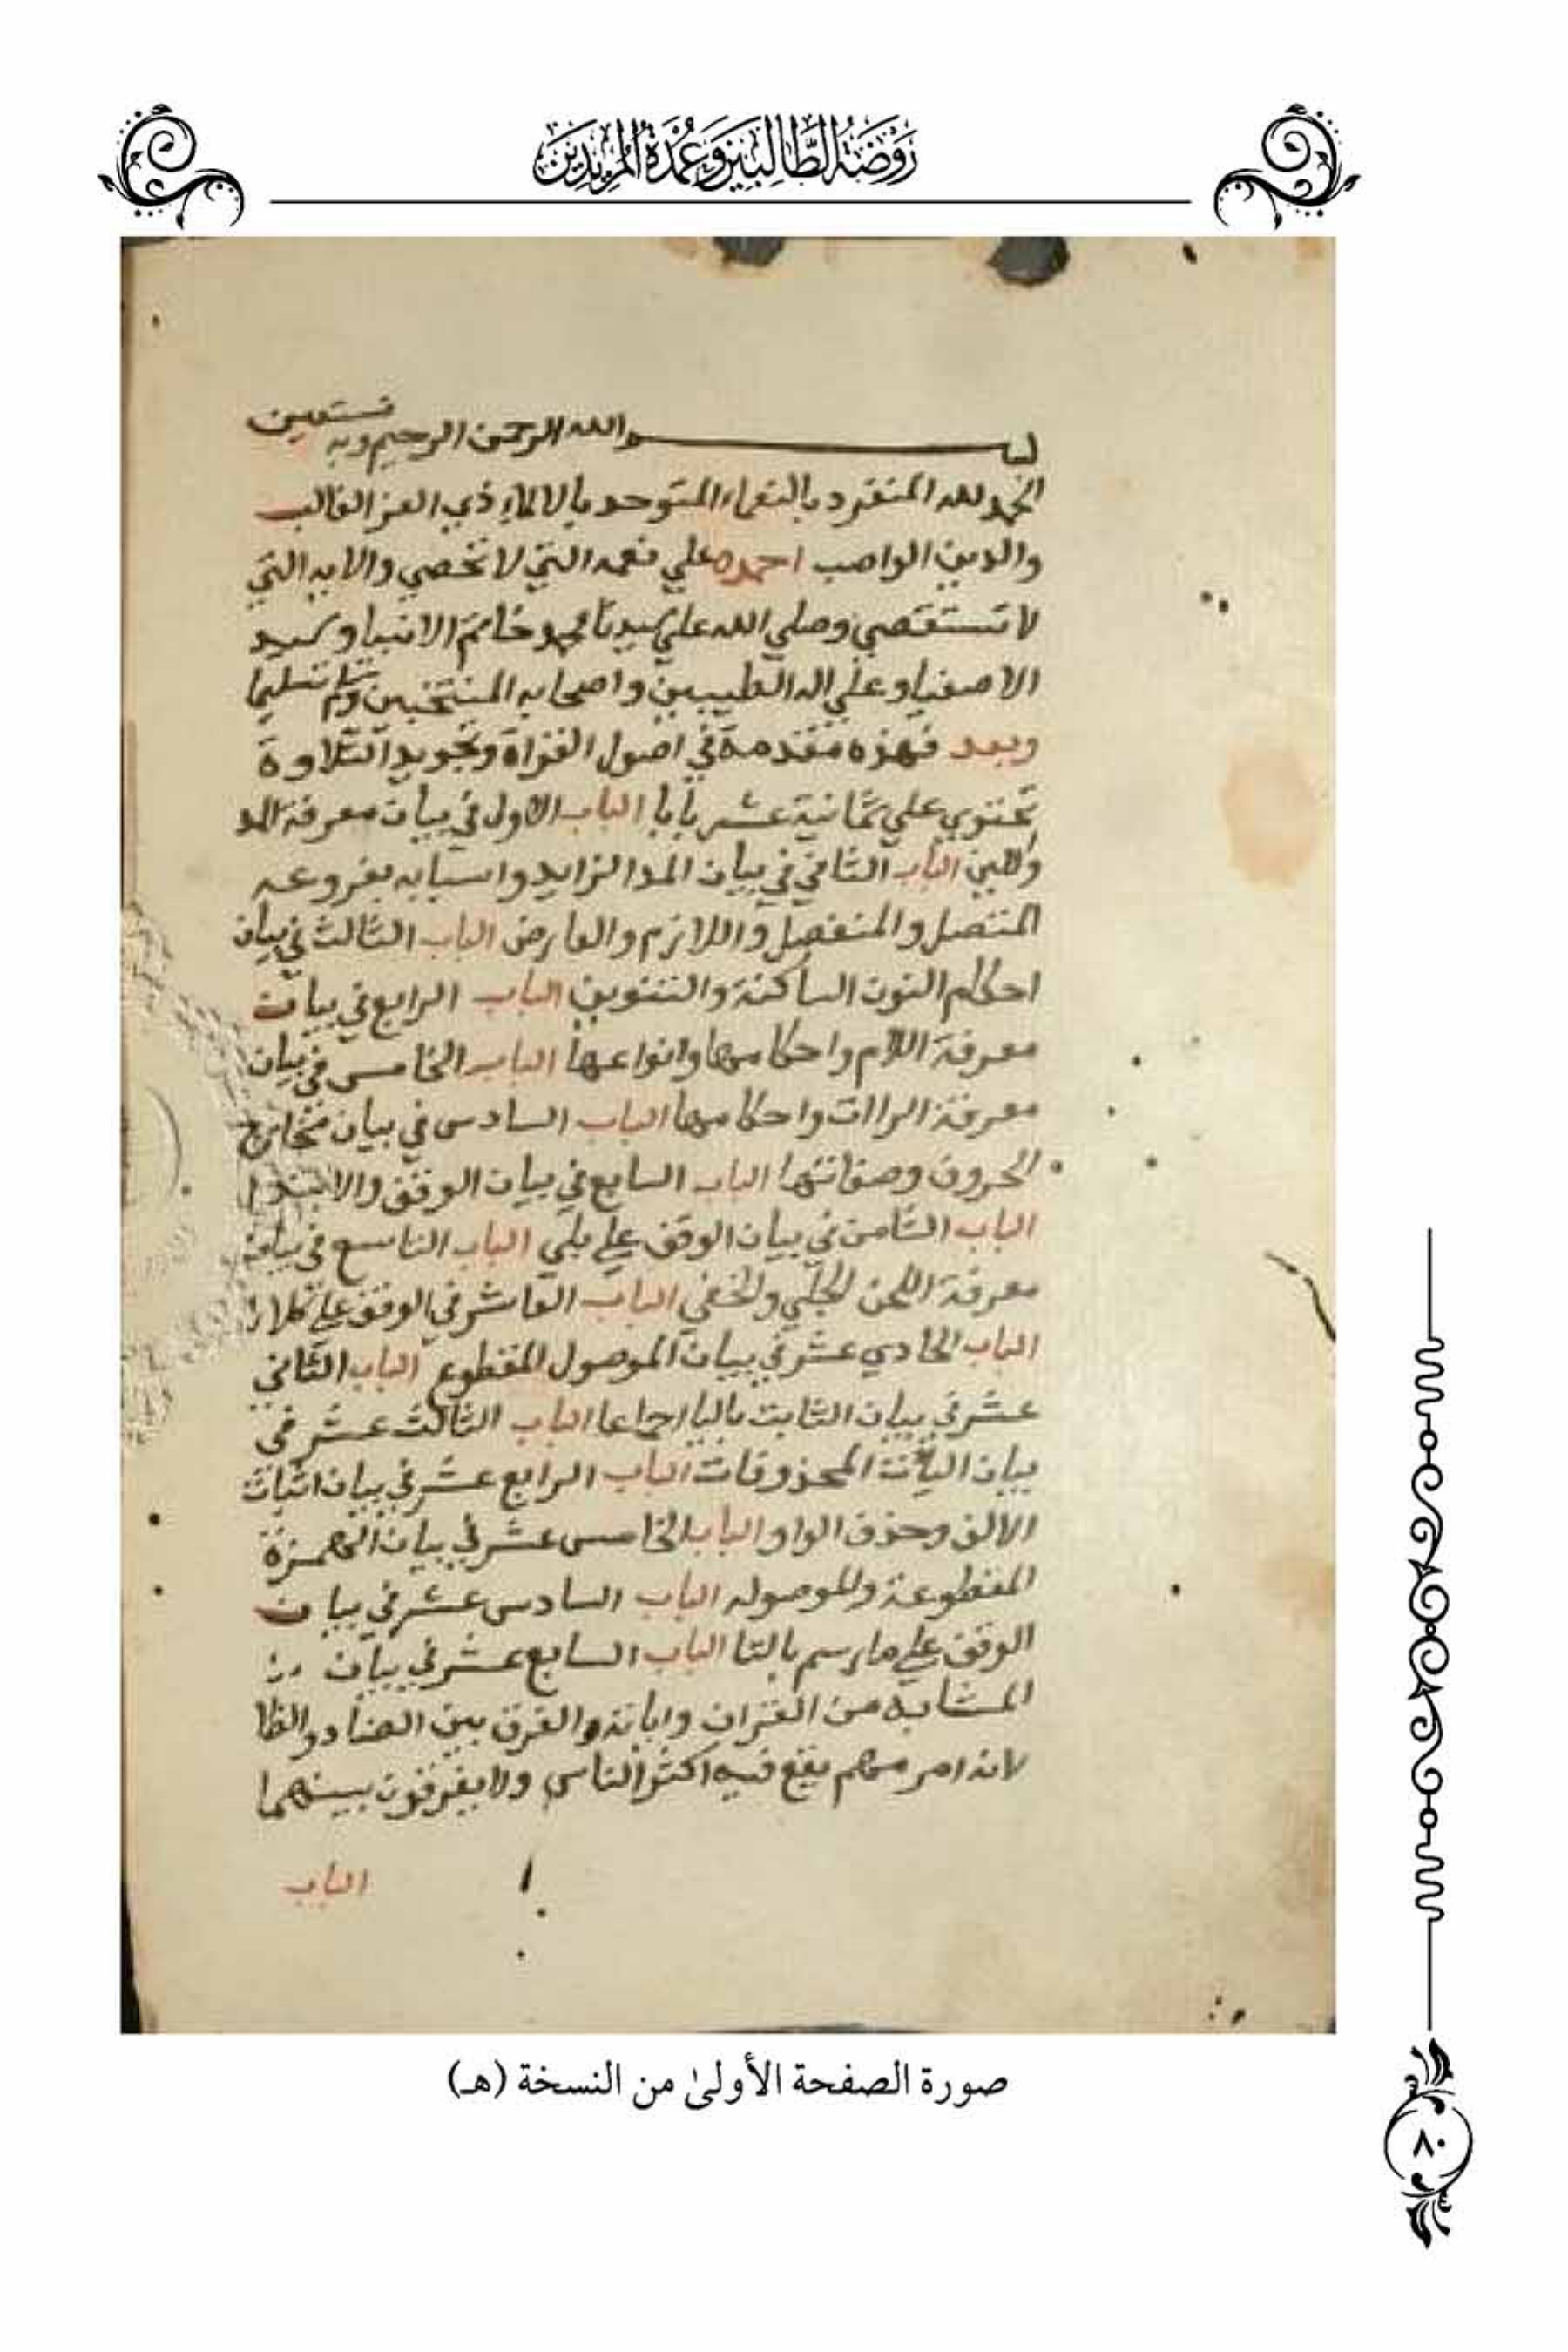 رَوْضَةُ الطَّالِبِينَ وَعُمْدَةُ المُرِيدِينَ
بسم الله الرحمن الرحيم وبه نستعين
الحمد لله المنفرد بالنعماء المتوحد بالالاء ذي العز الغالب
والدين الواصب احمده علي نعمه التي لا تحصي والايه التي
لا تستقصي وصلي الله علي سيدنا محمد خاتم الانبيا وسيد
الاصفيا وعلي اله الطيبين واصحابه المنتخبين وسلم تسليما
وبعد فهذه مقدمة في اصول القراة وتجويد التلاوة
تحتوي علي ثمانية عشر بابا الباب الاول في بيان معرفة المد
واللين الباب الثاني في بيان المد الزايد واسبابه بفروعه
المتصل والمنفصل واللازم والعارض الباب الثالث في بيان
احكام النون الساكنة والتنوين الباب الرابع في بيان
معرفة اللام واحكامها وانواعها الباب الخامس في بيان
معرفة الراات واحكامها الباب السادس في بيان مخارج
الحروف وصفاتها الباب السابع في بيان الوقف والابتدا
الباب الثامن في بيان الوقف علي بلي الباب التاسع في بيان
معرفة اللحن الجلي والخفي الباب العاشر في الوقف علي كلا
الباب الحادي عشر في بيان الموصول المقطوع الباب الثاني
عشر في بيان الثابت باليا اجماعا الباب الثالث عشر في
بيان المحذوفات الباب الرابع عشر في بيان اثبات
الالف وحذف الواو الباب الخامس عشر في بيان الهمزة
المقطوعة والموصوله الباب السادس عشر في بيان
الوقف علي ما رسم بالتا الباب السابع عشر في بيان
المتشابه من القران وابانة والفرق بين الضاد والظا
لانه امر مهم يقع فيه اكثر الناس ولا يفرقون بينهما
الباب
صورة الصفحة الأولىٰ من النسخة (هـ)
٨٠